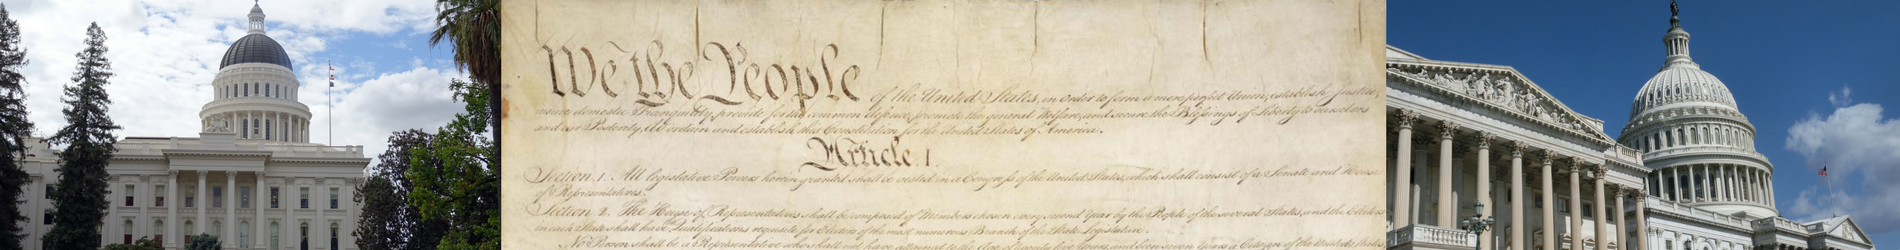 We the People of the United States, in Order to form a more perfect Union, establish Justice,
insure domestic Tranquility, provide for the common defence, promote the general Welfare, and secure the Blessings of Liberty to ourselves
and our Posterity, do ordain and establish this Constitution for the United States of America.
Article. I.
Section. 1. All legislative Powers herein granted shall be vested in a Congress of the United States, which shall consist of a Senate and House
of Representatives.
Section. 2. The House of Representatives shall be composed of Members chosen every second Year by the People of the several States, and the Electors
in each State shall have Qualifications requisite for Electors of the most numerous Branch of the State Legislature.
No Person shall be a Representative who shall not have attained to the Age of twenty five Years, and been seven Years a Citizen of the United States,